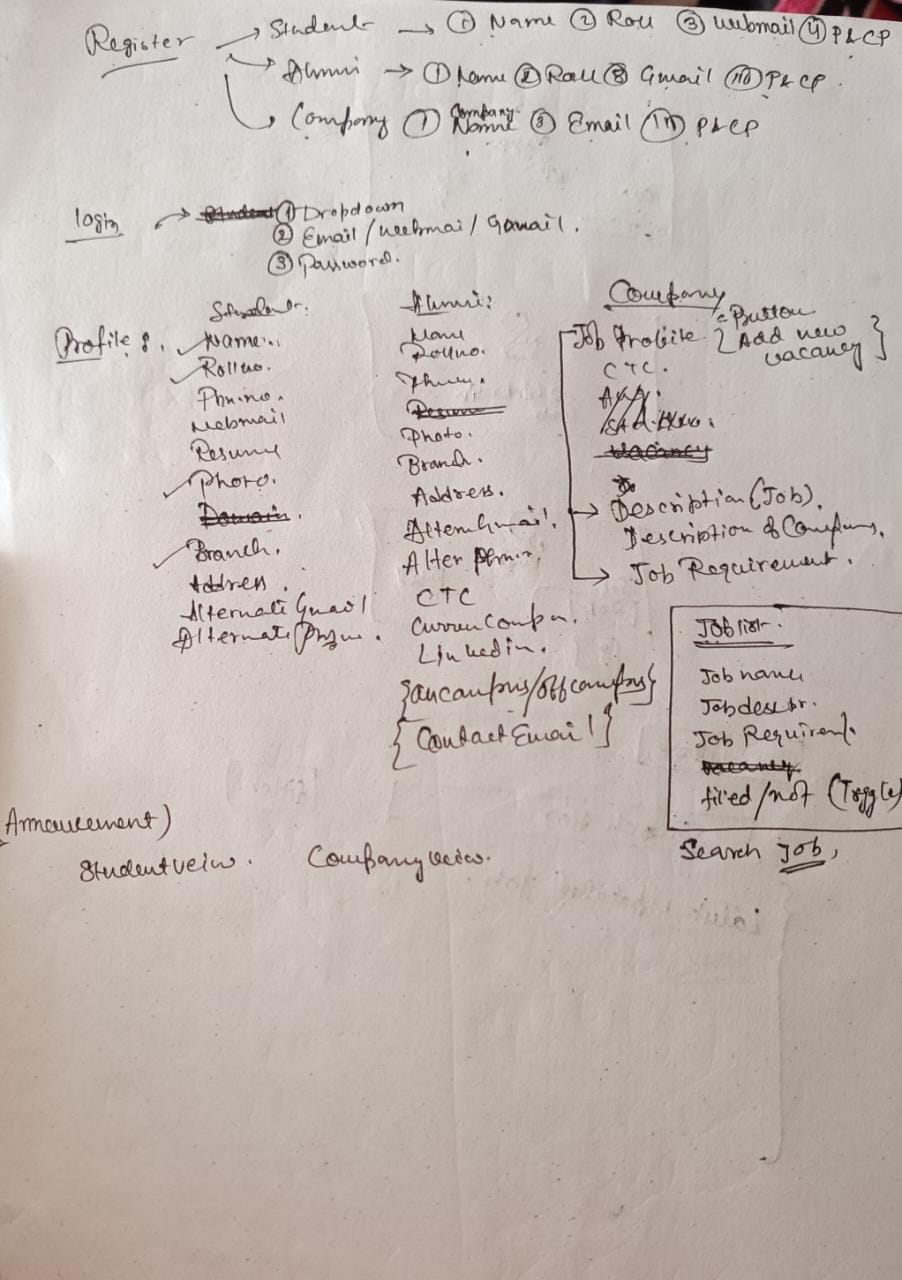 Register → Student → ① Name ② Roll ③ Webmail ④ P & CP
Alumni → ① Name ② Roll ③ Gmail P & CP
Company ① Company Name ③ Email P & CP
login → ① Dropdown
② Email / Webmai / Gamail.
③ Password.
Profile :.
Student:
Name:.
Roll no.
Ph.no.
Webmail
Resume
Photo.
Domain.
Branch.
Address.
Alternate Gmail
Alternate Phone.
Alumni:
Name
Rollno.
Phone.
Resume
Photo.
Branch.
Address.
Altern Gmail.
Alter
CTC
Curren Compn.
Linkedin.
{oncampus/offcampus}
{Contact Email}
Company
Job Profile {Button Add new vacancy}
CTC.
Vacancy
Description (Job).
Description of Company.
Job Requirement.
Job list.
Job name
Job descpr.
Job Requirem.
vacancy
filed/not (Toggle)
Search Job,
Annoucement)
Student veiw. Company veiw.